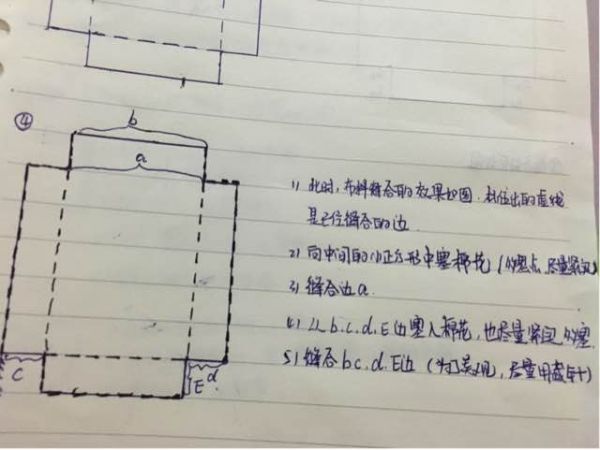 ④
b
a
1) 此时,布料缝合的效果如图.标注出的虚线
是已经缝合的边
2) 向中间的小正方形中塞棉花(多塞点,尽量紧实)
3) 缝合边a.
4) 从b.c.d.E边塞入棉花,也尽量紧实多塞.
5) 缝合bc.d.E边(为了美观,尽量用藏针)
c
E
d